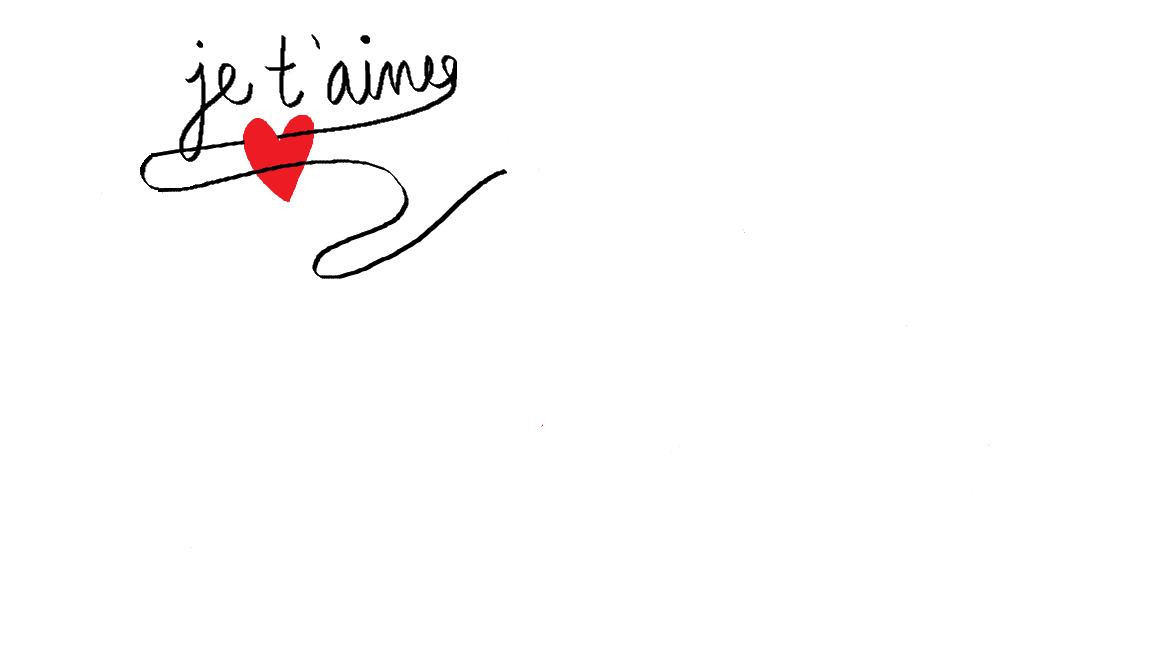 je t'aime